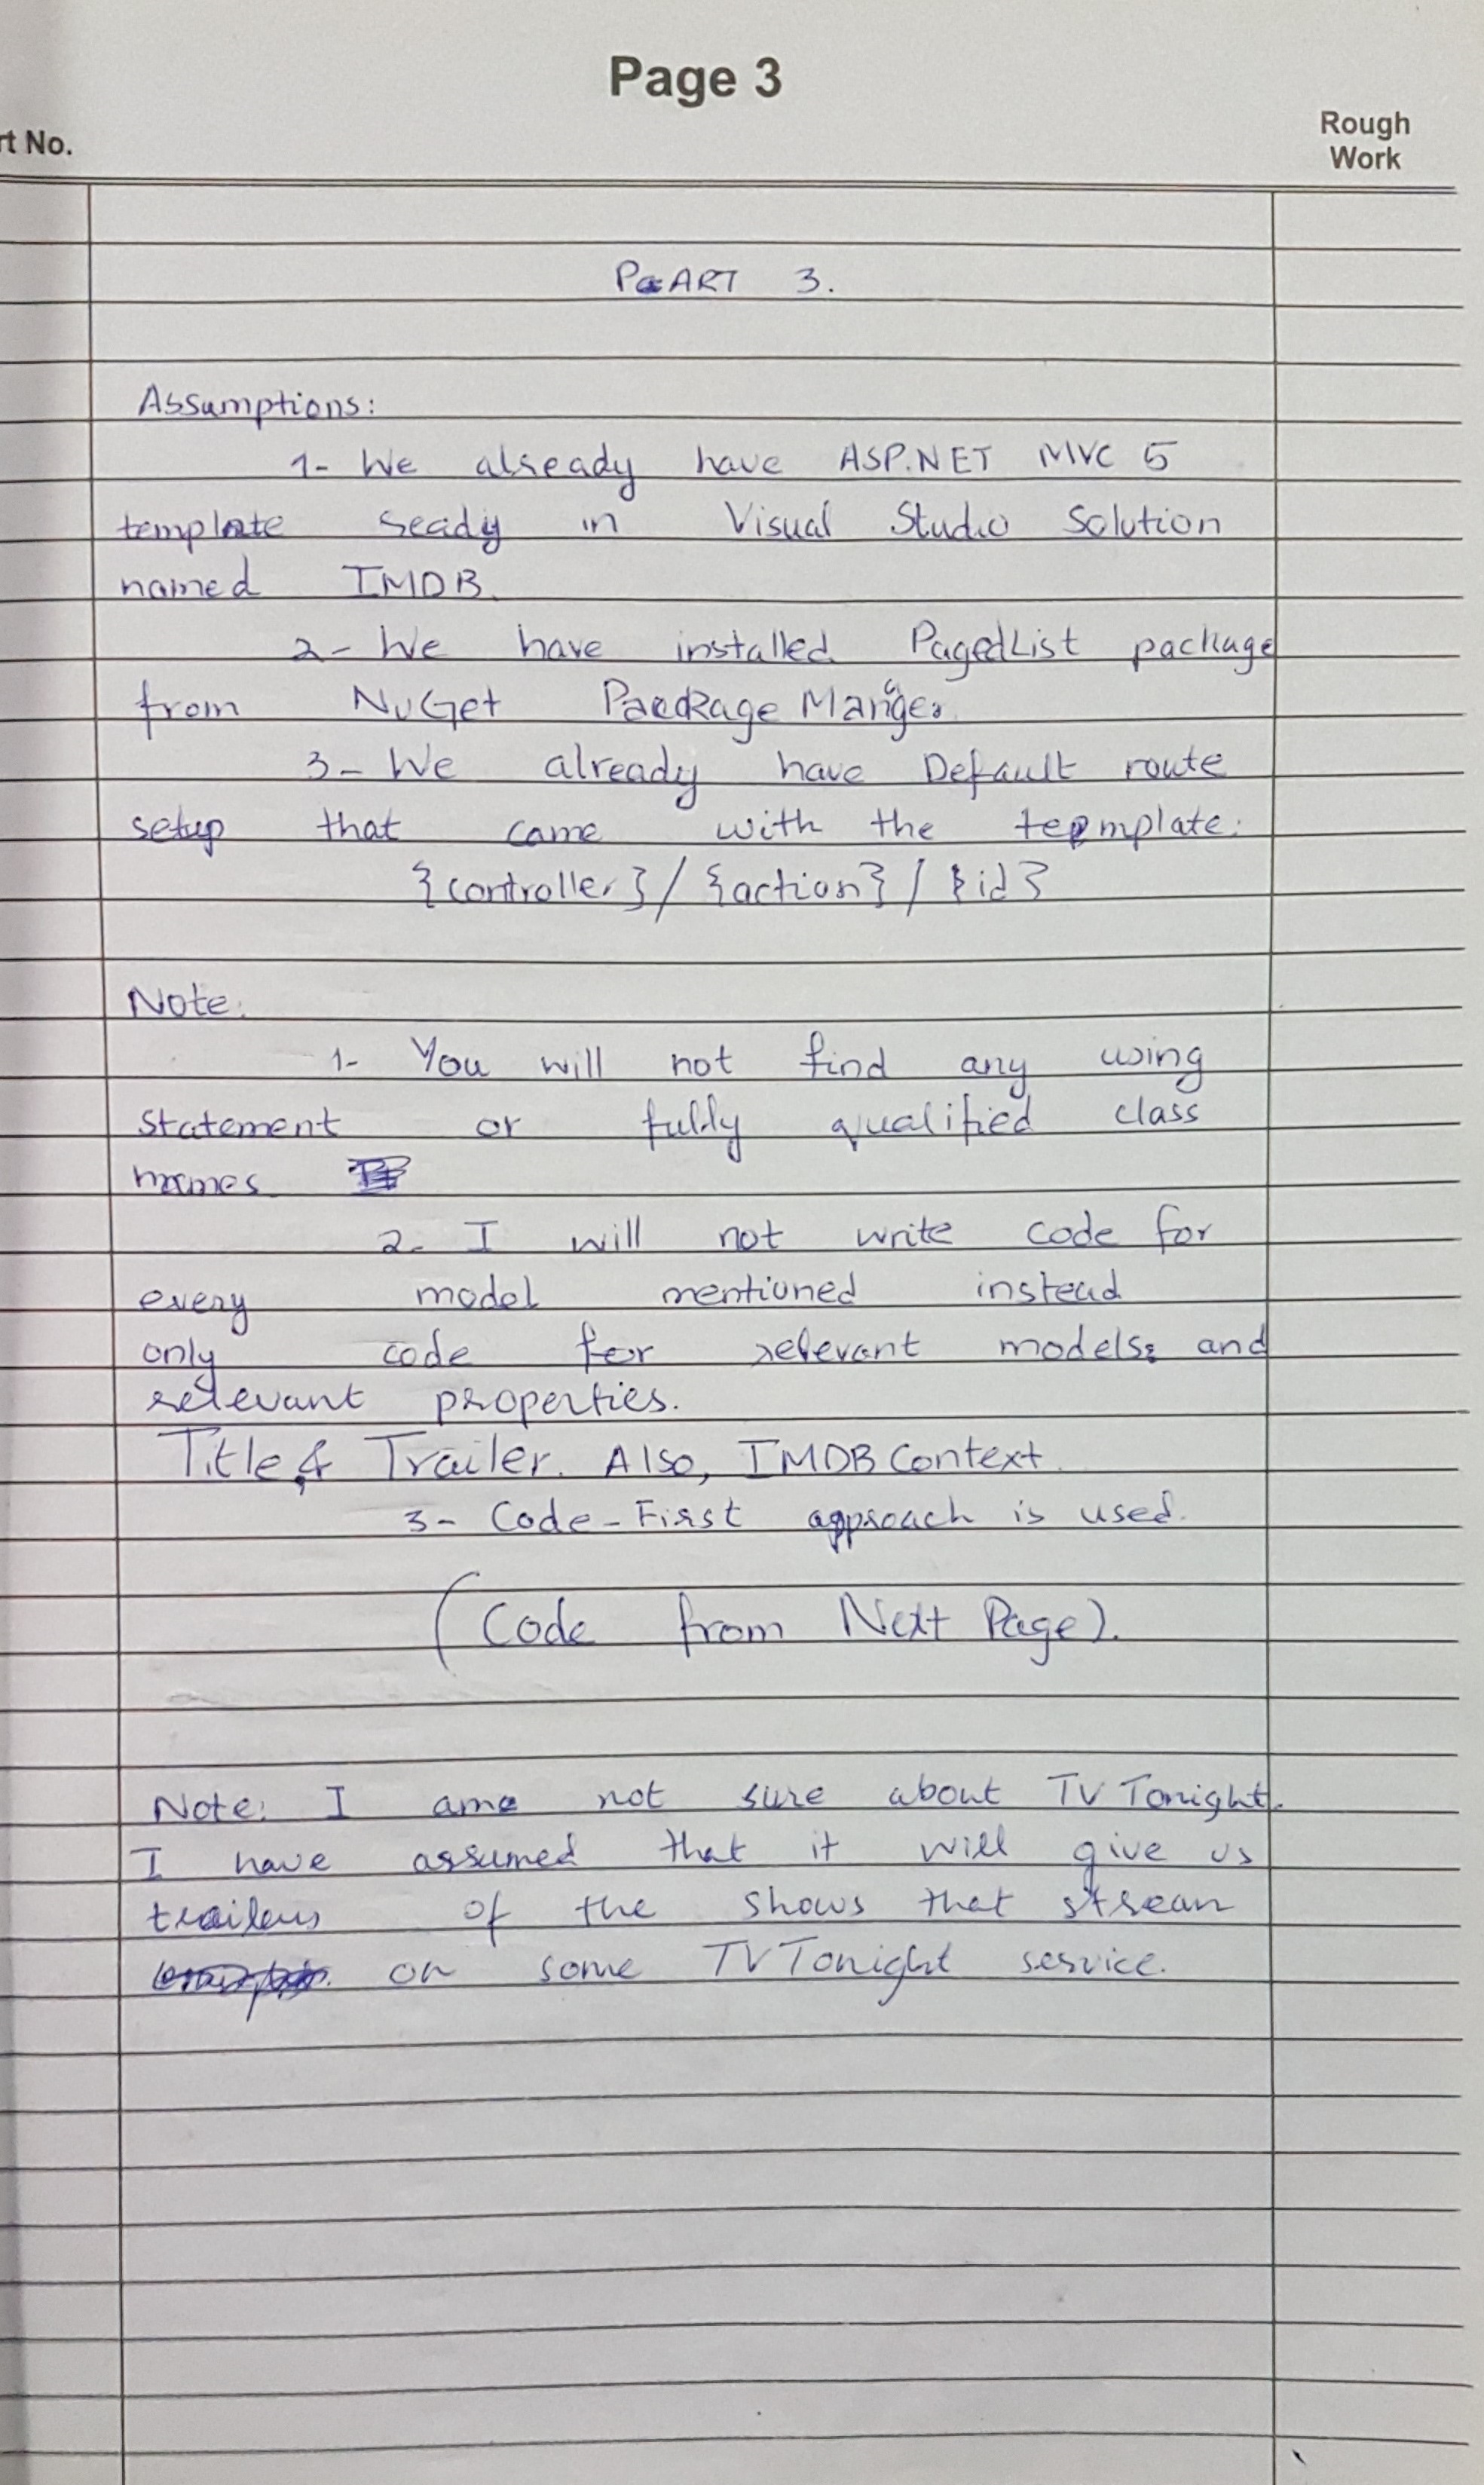 Page 3
rt No.
Rough
Work
PART 3.
Assumptions:
1- We already have ASP.NET MVC 5
template ready in Visual Studio Solution
named IMDB.
2- We have installed PagedList package
from NuGet Package Manger
3- We already have Default route
setup that came with the template.
{controller}/{action}/{id}
Note:
1- You will not find any using
statement or fully qualified class
names
2- I will not write code for
every model mentioned instead
only code for relevant models and
relevant properties.
Title & Trailer. Also, IMDBContext.
3- Code-First approach is used.
(Code from Next Page).
Note: I am not sure about TVTonight.
I have assumed that it will give us
trailers of the shows that stream
on some TVTonight service.